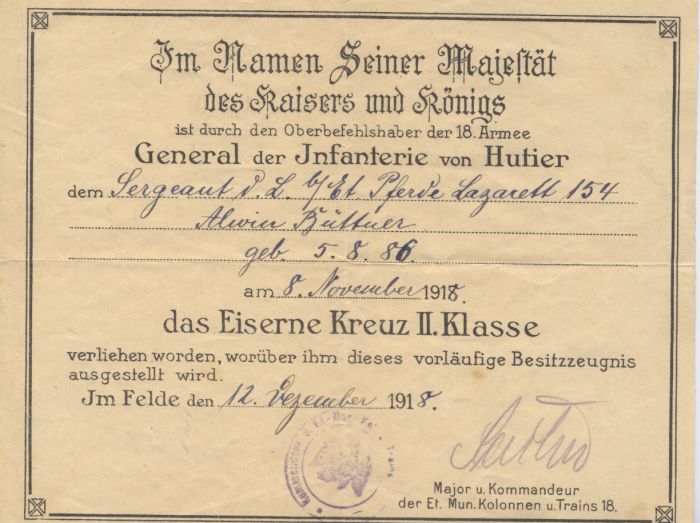 Im Namen Seiner Majestät
des Kaisers und Königs
ist durch den Oberbefehlshaber der 18. Armee
General der Jnfanterie von Hutier
dem Sergeant d. L. b/Et. Pferde Lazarett 154
Alwin Büttner
geb. 5. 8. 86.
am 8. November 1918.
das Eiserne Kreuz II. Klasse
verliehen worden, worüber ihm dieses vorläufige Besitzzeugnis
ausgestellt wird.
Jm Felde den 12. Dezember 1918.
Major u. Kommandeur
der Et. Mun. Kolonnen u. Trains 18.